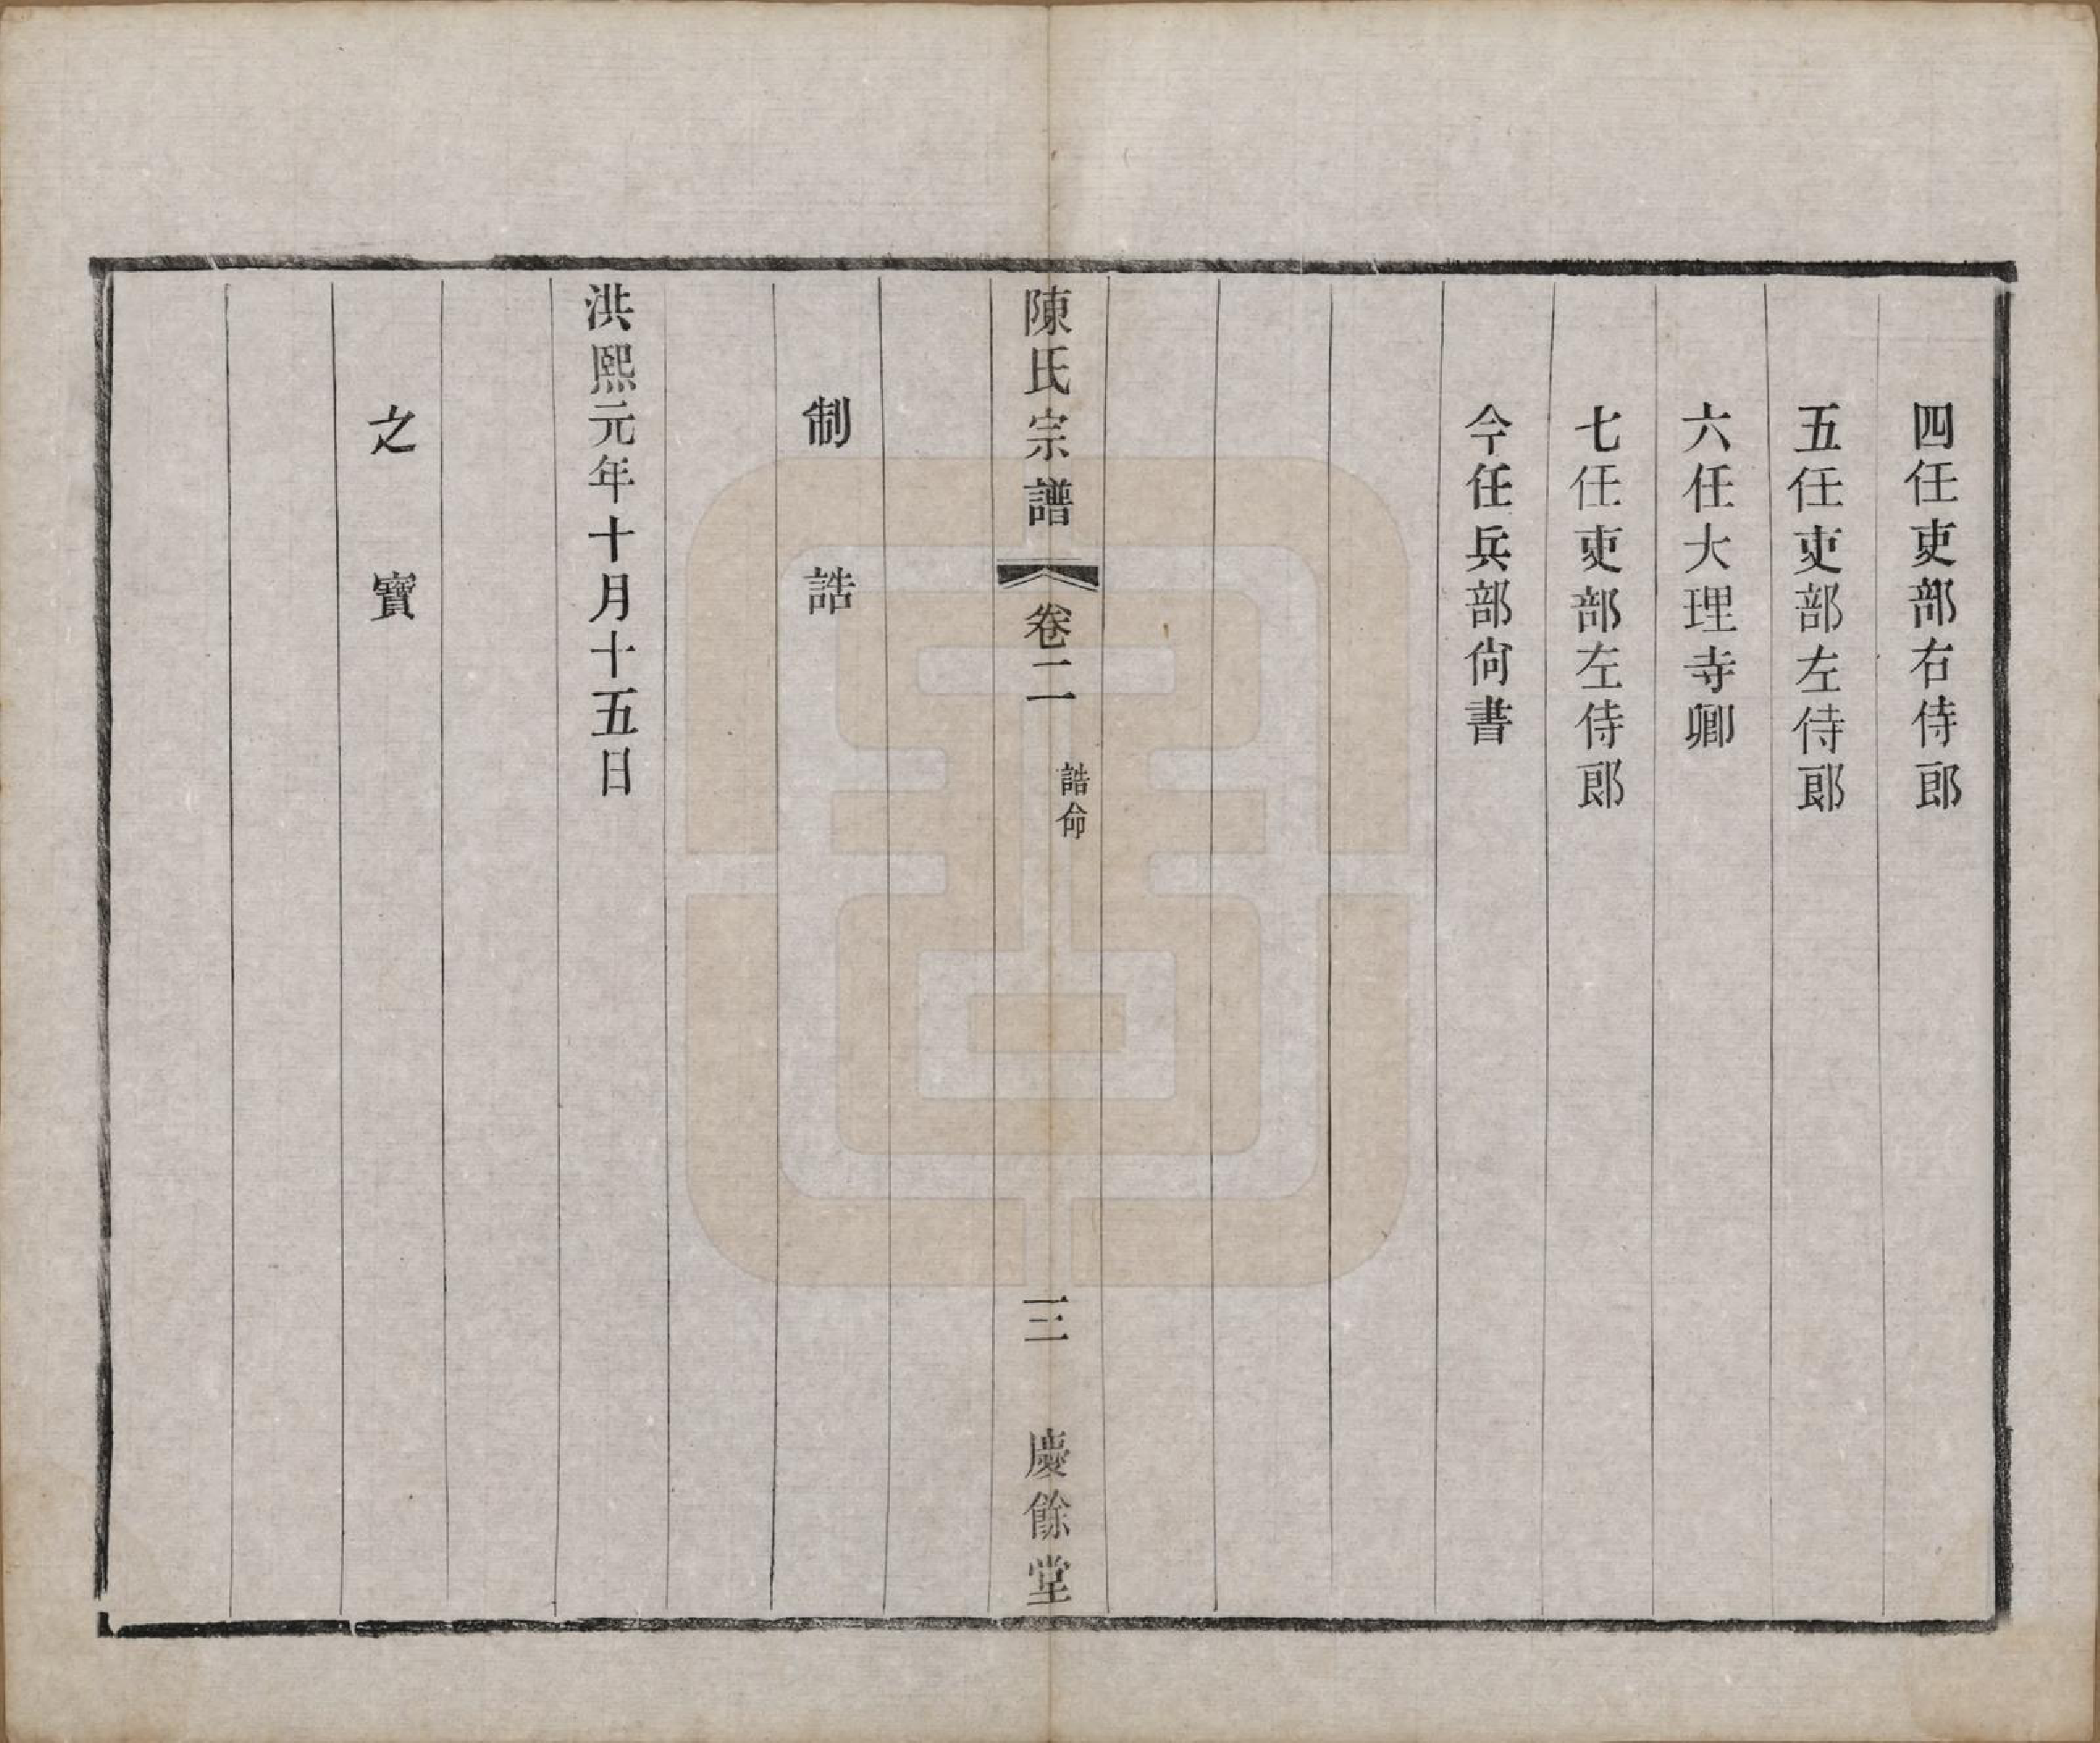 四任吏部右侍郎
五任吏部左侍郎
六任大理寺卿
七任吏部左侍郎
今任兵部尙書
陳氏宗譜 卷二 誥命 三 慶餘堂
制誥
洪熙元年十月十五日
之寶